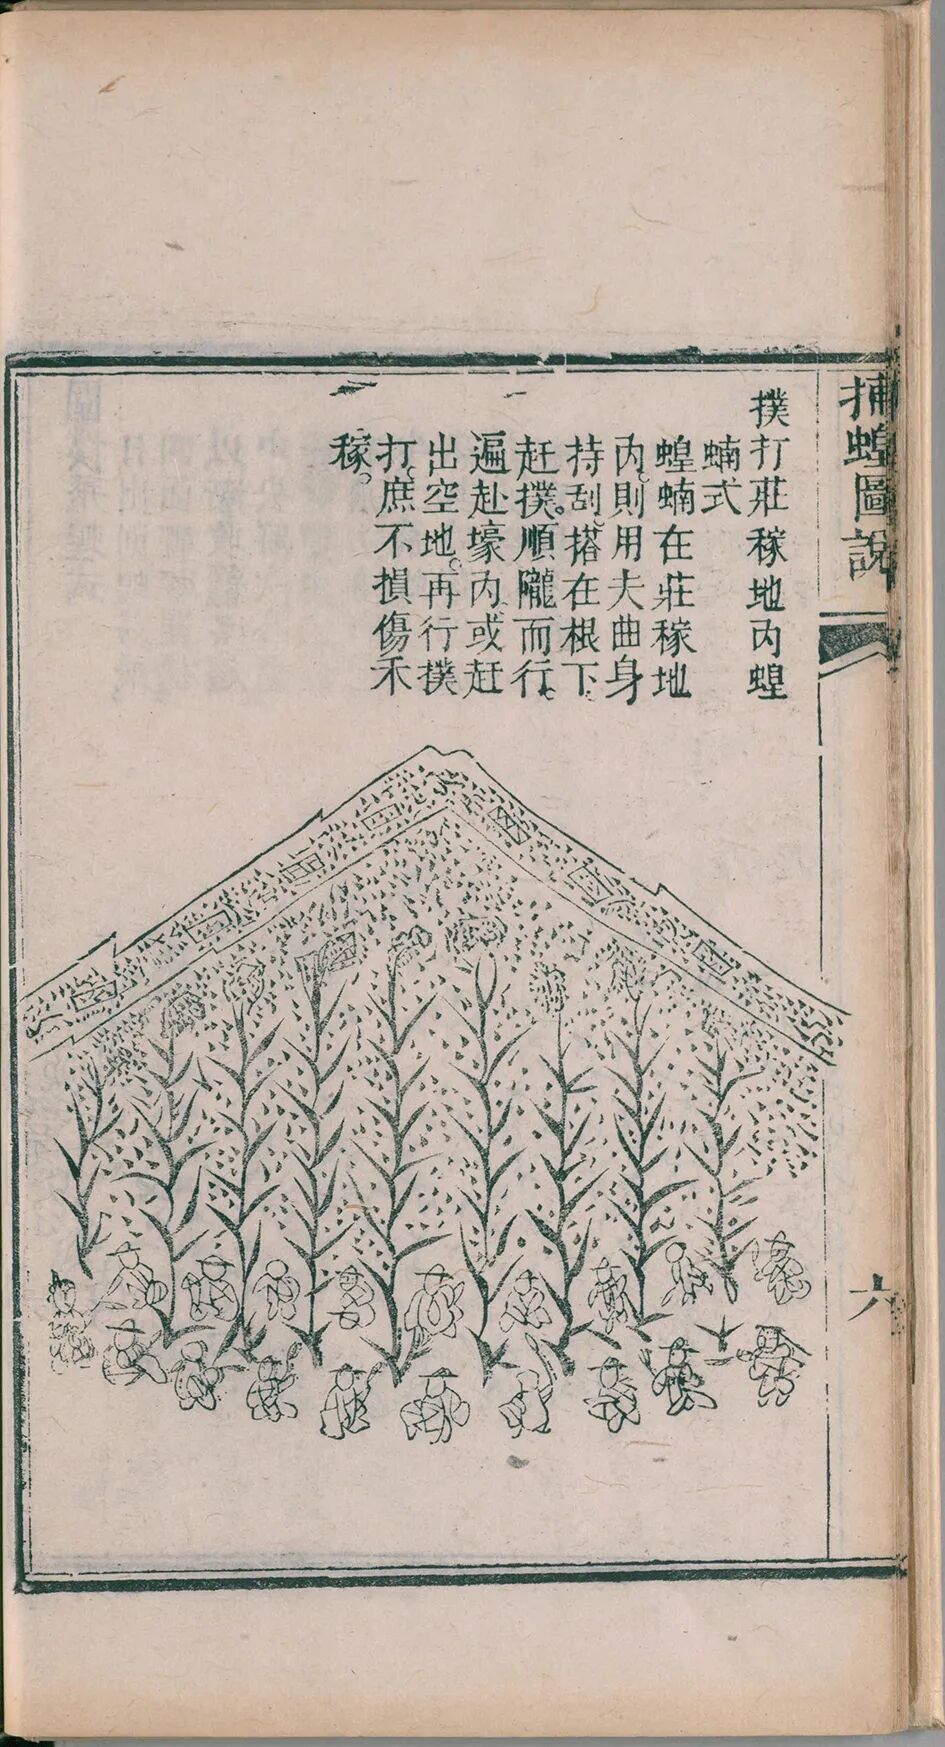 捕蝗圖說
六
撲打莊稼地內蝗
蝻式
蝗蝻在莊稼地
內。則用夫曲身
持刮。搭在根下
赶撲。順隴而行。
遍赴壕內。或赶
出空地。再行撲
打。庶不損傷禾
稼。